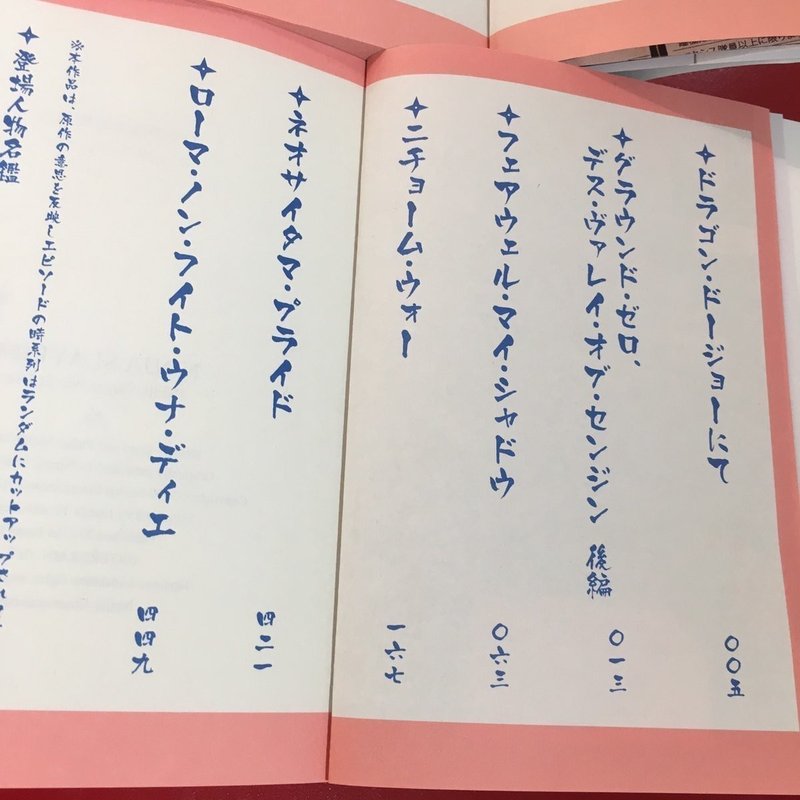 ✦ドラゴン・ドージョーにて
〇〇五
✦グラウンド・ゼロ、
デス・ヴァレイ・オブ・センジン 後編
〇一三
✦フェアウェル・マイ・シャドウ
〇六三
✦ニチョーム・ウォー
一六七
✦ネオサイタマ・プライド
四二一
✦ローマ・ノン・フイト・ウナ・ディエ
四四九
※本作品は、原作の意思を反映しエピソードの時系列はランダムにカットアップされ
✦登場人物名鑑